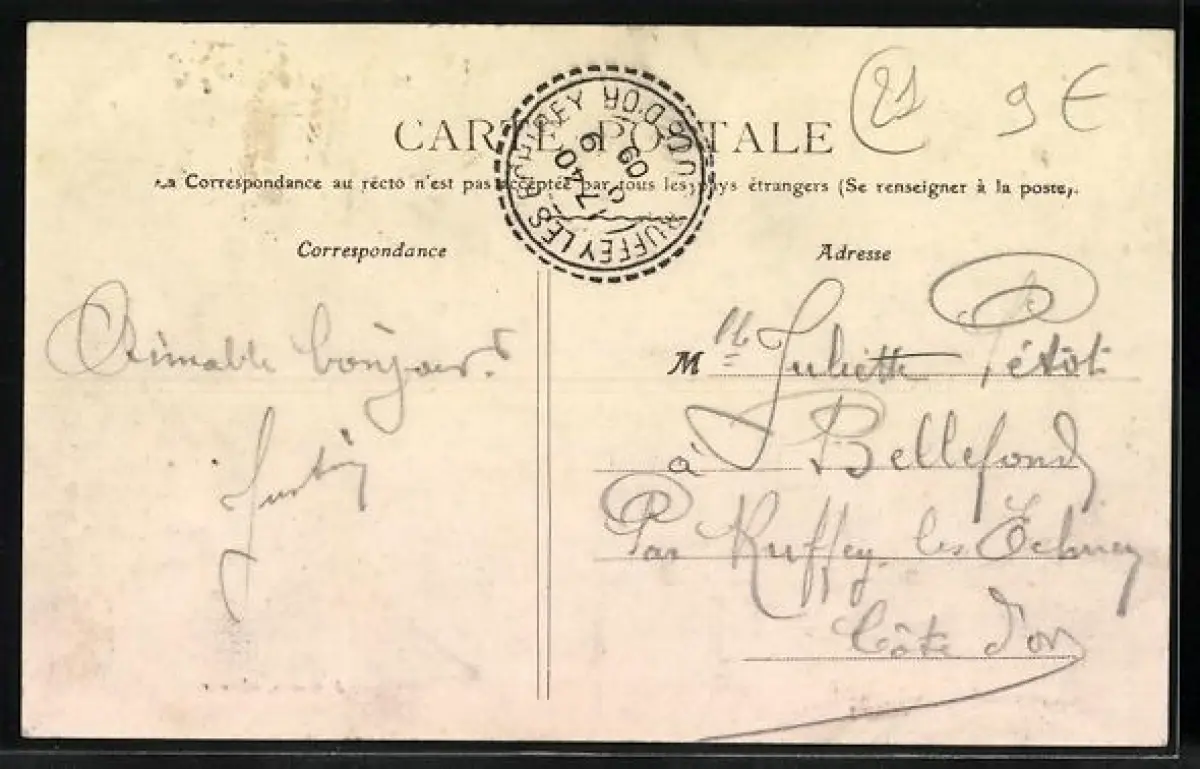 21 9 €
CARTE POSTALE
La Correspondance au recto n'est pas acceptée par tous les pays étrangers (Se renseigner à la poste).
RUFFEY LES ECHIREY
CÔTE D'OR
Correspondance
Adresse
Aimable bonjour.
Justin
Mlle Juliette Pétot
à Bellefond
Par Ruffey les Échirey
Côte d'or